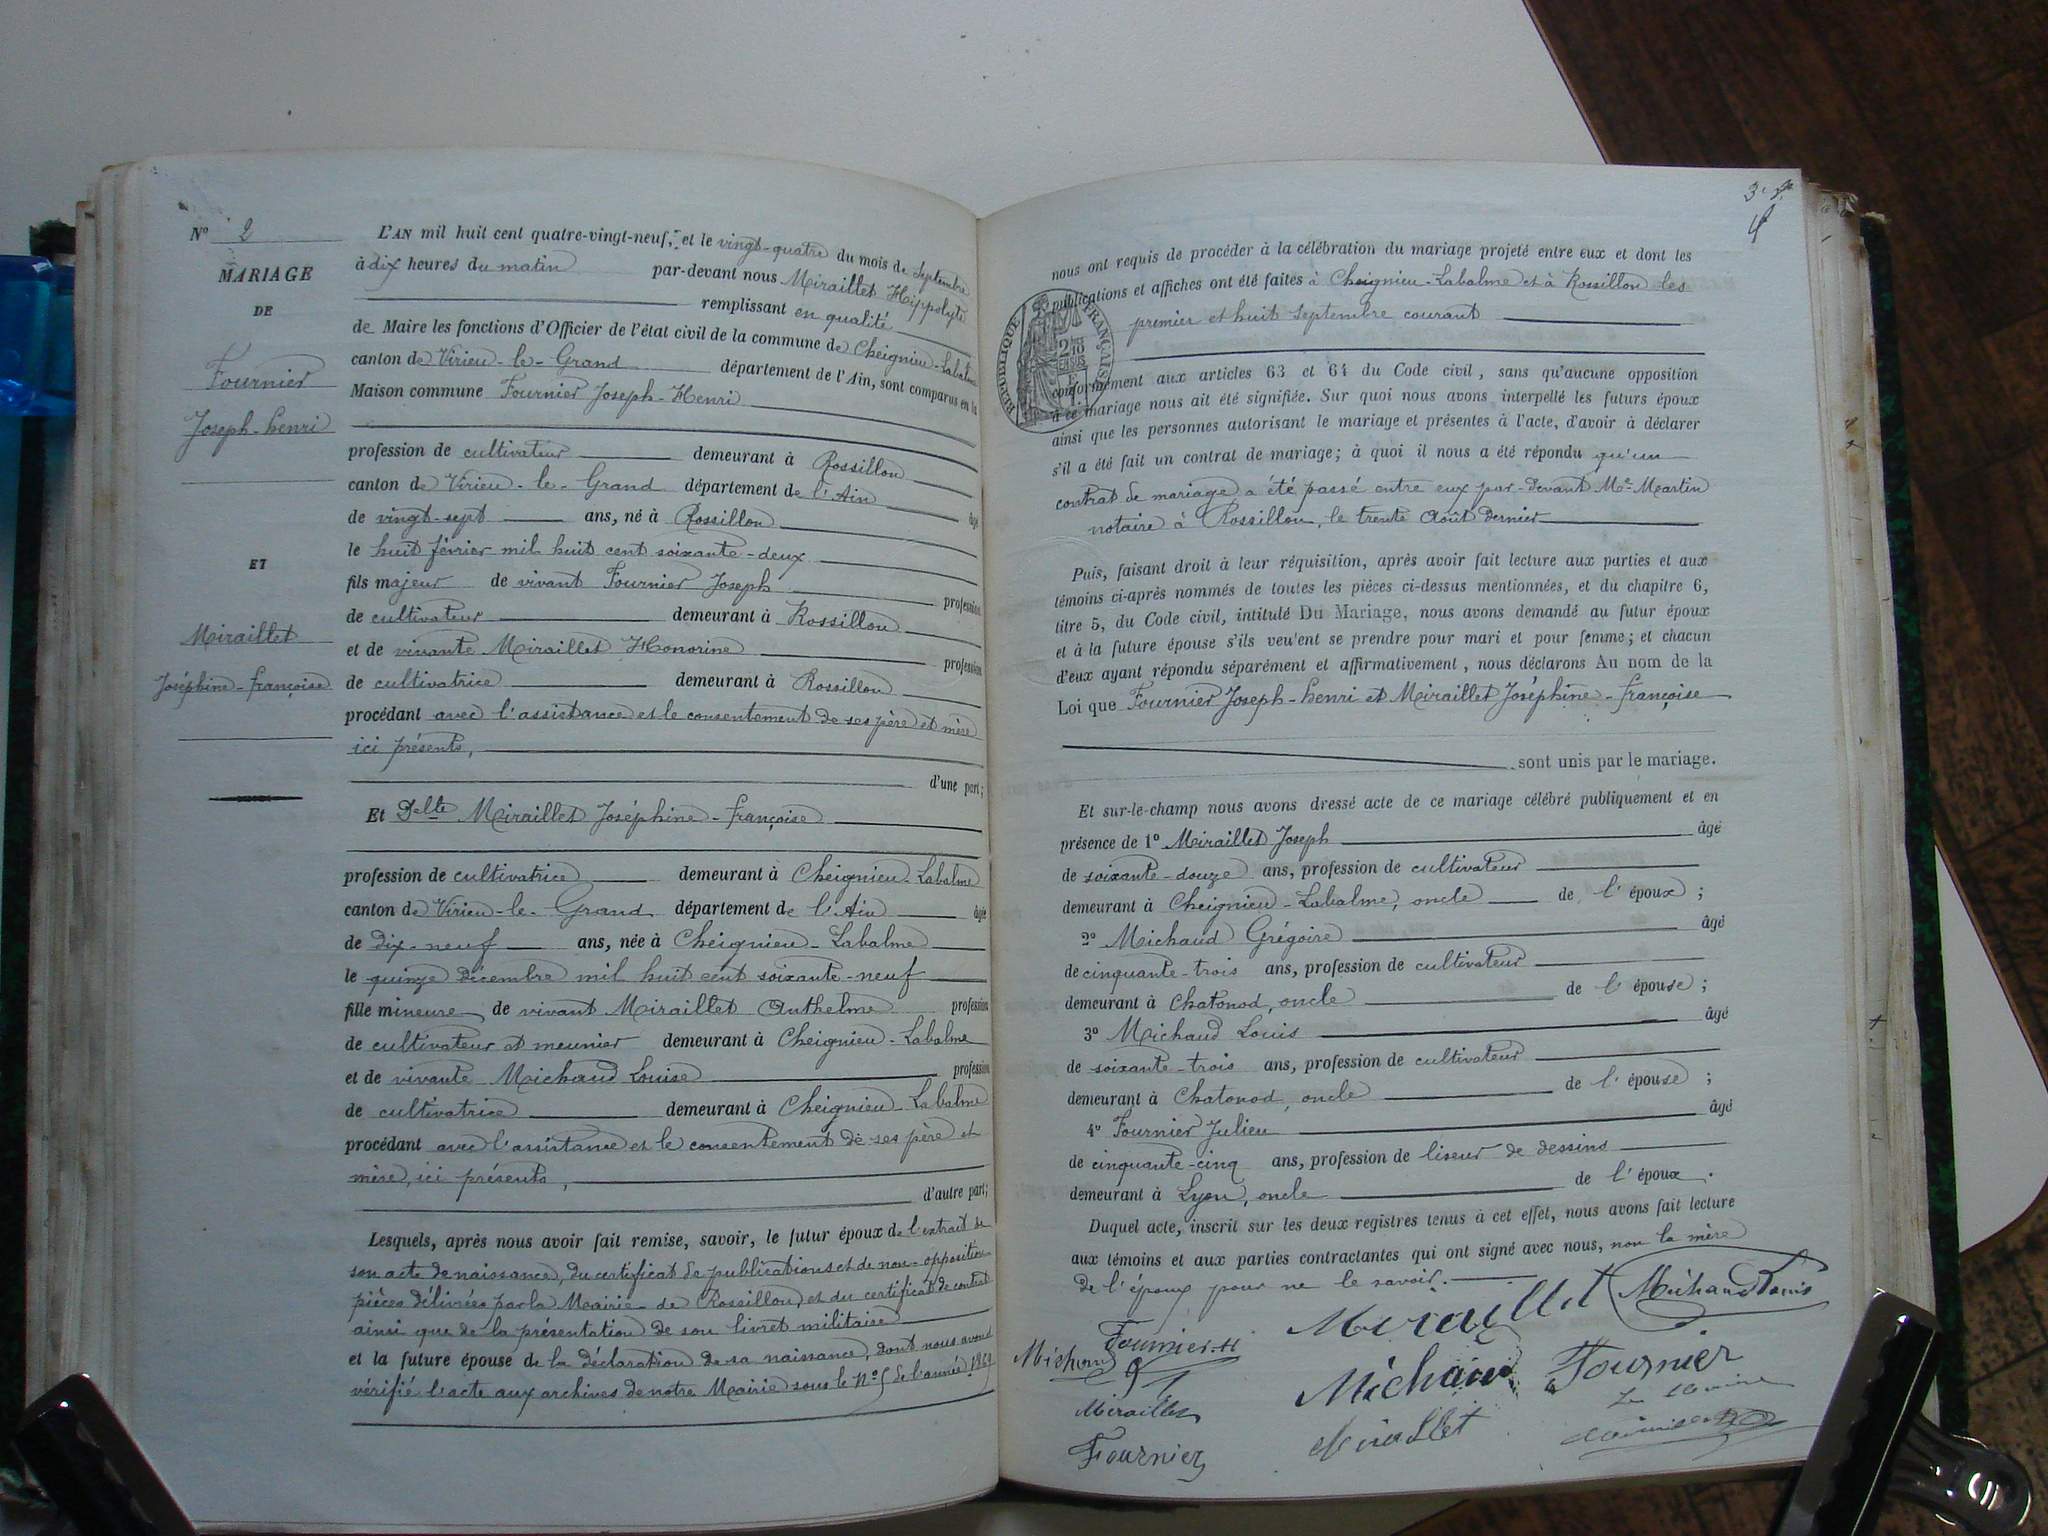 N° 2
MARIAGE
DE
Fournier
Joseph-henri
ET
Miraillet
Joséphine-françoise
L'AN mil huit cent quatre-vingt-neuf, et le vingt-quatre du mois de Septembre
à dix heures du matin par-devant nous Miraillet Hippolyte
remplissant en qualité
de Maire les fonctions d'Officier de l'état civil de la commune de Cheignieu-Labalme
canton de Virieu-le-Grand département de l'Ain, sont comparus en la
Maison commune Fournier Joseph-Henri
profession de cultivateur demeurant à Rossillon
canton de Virieu-le-Grand département de l'Ain âgé
de vingt-sept ans, né à Rossillon
le huit février mil huit cent soixante-deux
fils majeur de vivant Fournier Joseph profession
de cultivateur demeurant à Rossillon
et de vivante Miraillet Honorine profession
de cultivatrice demeurant à Rossillon
procédant avec l'assistance et le consentement de ses père et mère
ici présents,
d'une part;
Et Delle Miraillet Joséphine-françoise
profession de cultivatrice demeurant à Cheignieu-Labalme
canton de Virieu-le-Grand département de l'Ain âgée
de dix-neuf ans, née à Cheignieu-Labalme
le quinze décembre mil huit cent soixante-neuf
fille mineure de vivant Miraillet Anthelme profession
de cultivateur et meunier demeurant à Cheignieu-Labalme
et de vivante Michaud Louise profession
de cultivatrice demeurant à Cheignieu-Labalme
procédant avec l'assistance et le consentement de ses père et
mère, ici présents,
d'autre part;
Lesquels, après nous avoir fait remise, savoir, le futur époux de l'extrait de
son acte de naissance, du certificat de publications et de non-opposition
pièces délivrées par la Mairie de Rossillon, et du certificat de contrat
ainsi que de la présentation de son livret militaire
et la future épouse de la déclaration de sa naissance, dont nous avons
vérifié l'acte aux archives de notre Mairie sous le N° 5 de l'année 1869
nous ont requis de procéder à la célébration du mariage projeté entre eux et dont les
publications et affiches ont été faites à Cheignieu-Labalme et à Rossillon les
premier et huit septembre courant
RÉPUBLIQUE FRANÇAISE
conformément aux articles 63 et 64 du Code civil, sans qu'aucune opposition
à ce mariage nous ait été signifiée. Sur quoi nous avons interpellé les futurs époux
ainsi que les personnes autorisant le mariage et présentes à l'acte, d'avoir à déclarer
s'il a été fait un contrat de mariage; à quoi il nous a été répondu qu'un
contrat de mariage a été passé entre eux par-devant Me Martin
notaire à Rossillon, le trente Août dernier
Puis, faisant droit à leur réquisition, après avoir fait lecture aux parties et aux
témoins ci-après nommés de toutes les pièces ci-dessus mentionnées, et du chapitre 6,
titre 5, du Code civil, intitulé Du Mariage, nous avons demandé au futur époux
et à la future épouse s'ils veu'ent se prendre pour mari et pour femme; et chacun
d'eux ayant répondu séparément et affirmativement, nous déclarons Au nom de la
Loi que Fournier Joseph-henri et Miraillet Joséphine-françoise
sont unis par le mariage.
Et sur-le-champ nous avons dressé acte de ce mariage célébré publiquement et en
présence de 1° Miraillet Joseph âgé
de soixante-douze ans, profession de cultivateur
demeurant à Cheignieu-Labalme, oncle de l'époux;
2° Michaud Grégoire âgé
de cinquante-trois ans, profession de cultivateur
demeurant à Chatonod, oncle de l'épouse;
3° Michaud Louis âgé
de soixante-trois ans, profession de cultivateur
demeurant à Chatonod, oncle de l'épouse;
4° Fournier Julien âgé
de cinquante-cinq ans, profession de liseur de dessins
demeurant à Lyon, oncle de l'époux.
Duquel acte, inscrit sur les deux registres tenus à cet effet, nous avons fait lecture
aux témoins et aux parties contractantes qui ont signé avec nous, non la mère
de l'époux pour ne le savoir.
Miraillet Michaud Louis
Michaud Fournier H
Michaud Fournier
Miraillet
Miraillet
Le Maire
Fournier